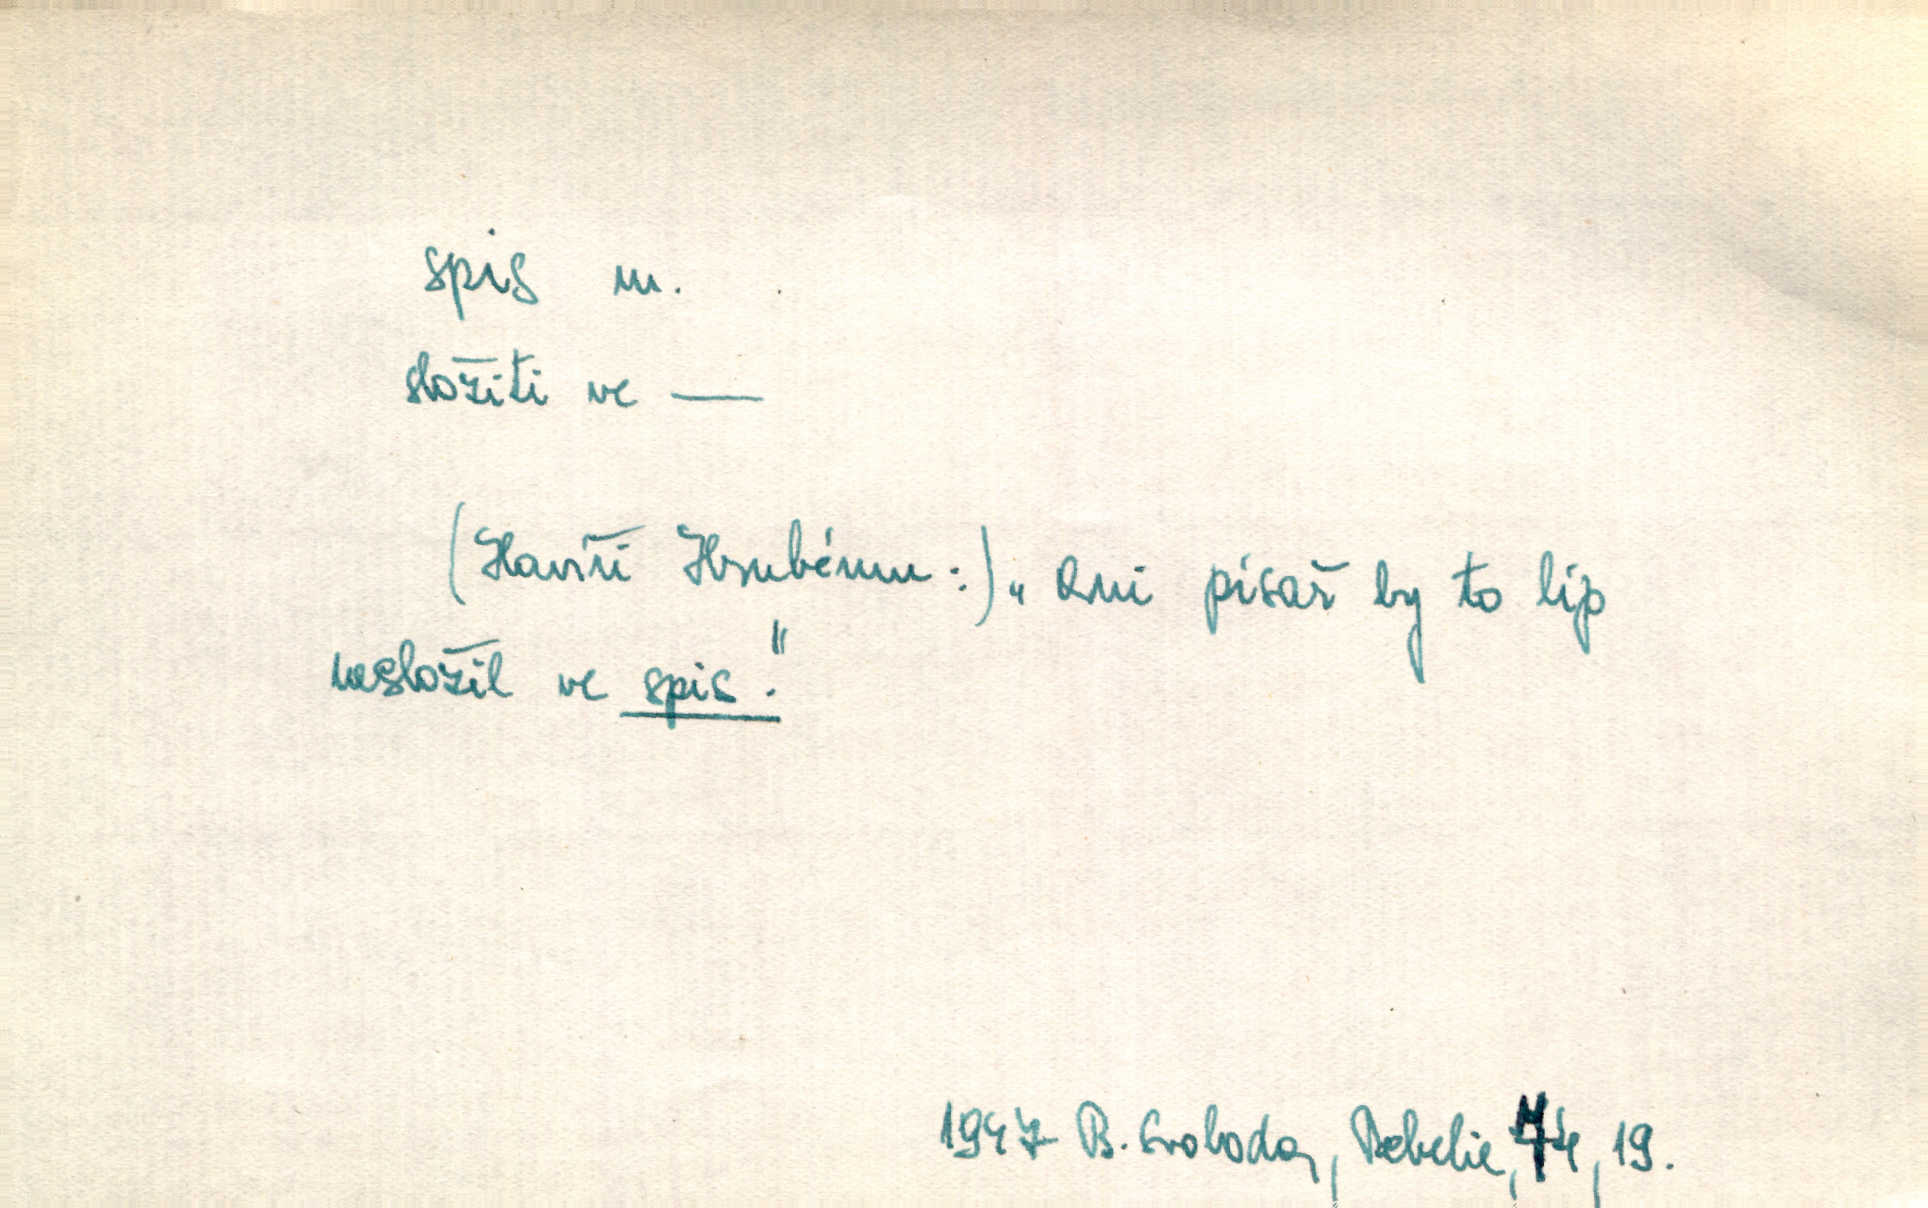 spis m.
složiti ve —
(Havíři Hrubému:) „Ani písař by to líp
nesložil ve spis."
1947 B. Svoboda, Rebelie, 74, 19.